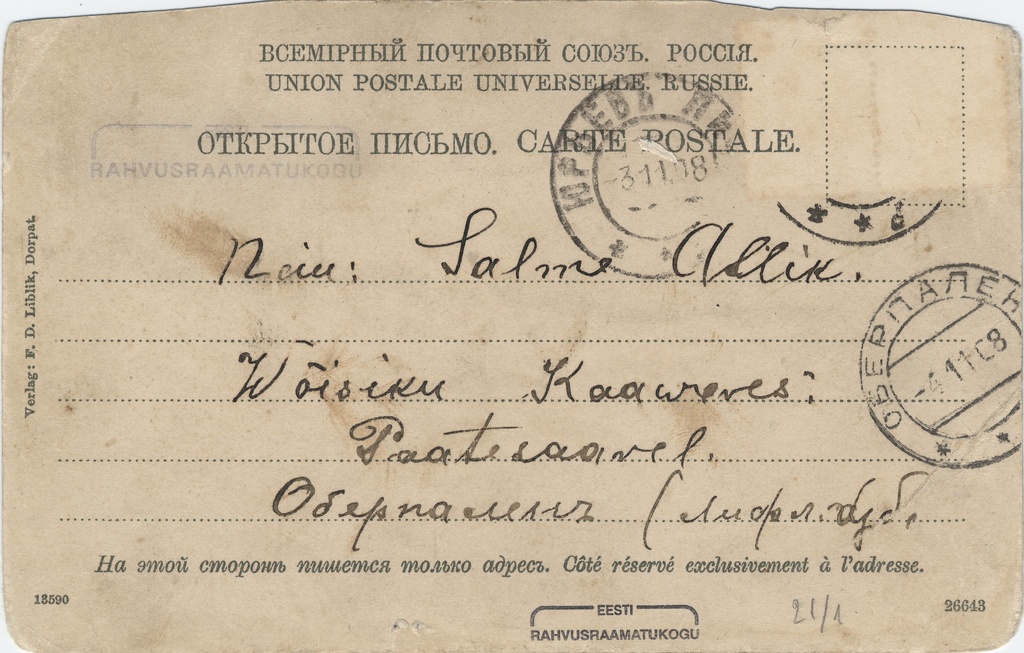 ВСЕМІРНЫЙ ПОЧТОВЫЙ СОЮЗЪ. РОССІЯ.
UNION POSTALE UNIVERSELLE. RUSSIE.
ОТКРЫТОЕ ПИСЬМО. CARTE POSTALE.
RAHVUSRAAMATUKOGU
ЮРЬЕВЪ
-3.11.08
Salme Allik.
Wõisiku Kaaweres:
Paatesaarel.
ОБЕРПАЛЕН
-4.11.08
Оберпаленъ (Лифл. губ.
На этой сторонѣ пишется только адресъ. Côté réservé exclusivement à l'adresse.
Verlag: F. D. Liblik, Dorpat.
13590
EESTI
RAHVUSRAAMATUKOGU
21/1
26643